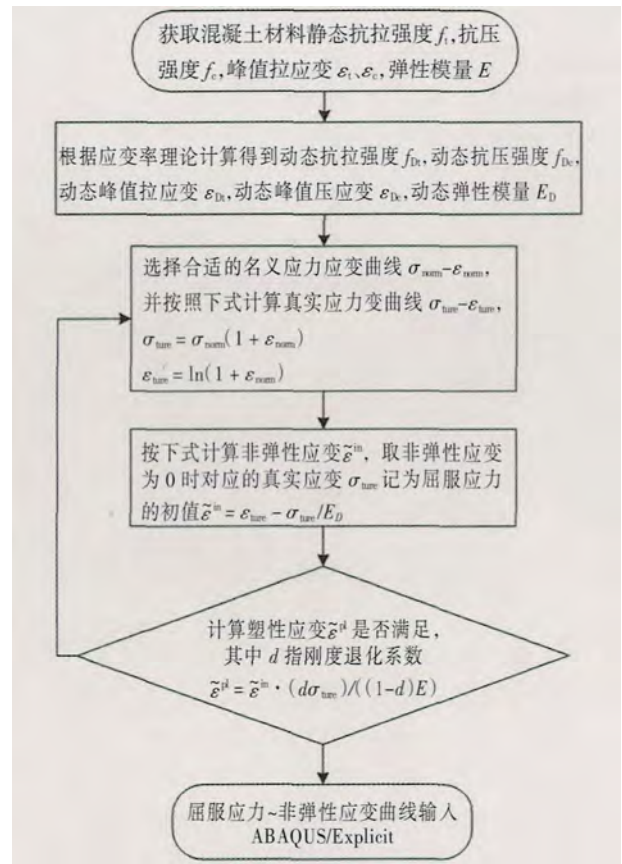 获取混凝土材料静态抗拉强度 fₜ,抗压
强度 f_c,峰值拉应变 ε_t、ε_c,弹性模量 E
根据应变率理论计算得到动态抗拉强度 f_Dt,动态抗压强度 f_Dc,
动态峰值拉应变 ε_Dt,动态峰值压应变 ε_Dc,动态弹性模量 E_D
选择合适的名义应力应变曲线 σ_norm-ε_norm,
并按照下式计算真实应力变曲线 σ_ture-ε_ture,
σ_ture = σ_norm(1 + ε_norm)
ε_ture = ln(1 + ε_norm)
按下式计算非弹性应变ε̃^in, 取非弹性应变
为 0 时对应的真实应变 σ_ture 记为屈服应力
的初值ε̃^in = ε_ture − σ_ture/E_D
计算塑性应变ε̃^pl 是否满足,
其中 d 指刚度退化系数
ε̃^pl = ε̃^in · (dσ_ture)/((1-d)E)
屈服应力~非弹性应变曲线输入
ABAQUS/Explicit